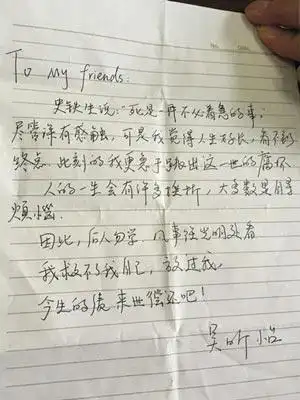 To My friends:
史铁生说:"死是一件不必着急的事,
尽管深有感触,可是我觉得人生好长,看不到
终点。此刻的我更乐于跳出这一世的腐坏
人的一生会有许多挫折,大多数是自寻
烦恼.
因此,后人勿学.凡事往光明处看
我救不了我自己,放过我,
今生的债来世偿还吧!
吴昕怡